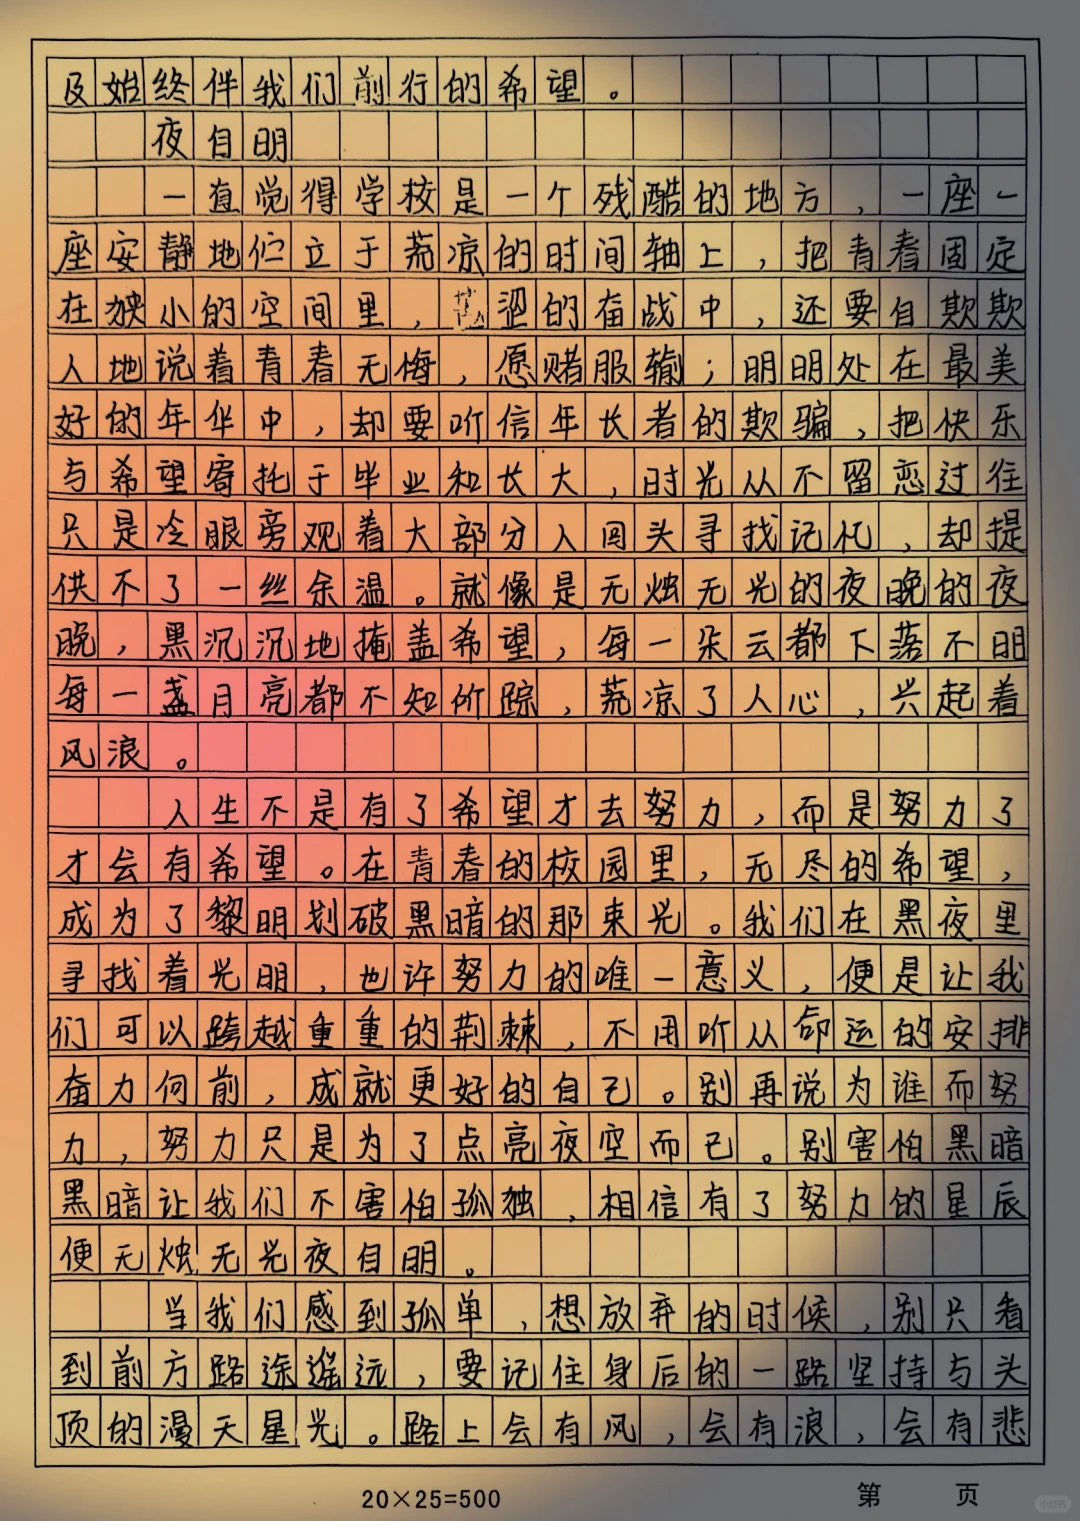 及始终伴我们前行的希望。
夜自明
一直觉得学校是一个残酷的地方，一座一
座安静地伫立于荒凉的时间轴上，把青春固定
在狭小的空间里，涩的奋战中，还要自欺欺
人地说着青春无悔，愿赌服输；明明处在最美
好的年华中，却要听信年长者的欺骗，把快乐
与希望寄托于毕业和长大，时光从不留恋过往
只是冷眼旁观着大部分人回头寻找记忆，却提
供不了一丝余温。就像是无烛无光的夜晚的夜
晚，黑沉沉地掩盖希望，每一朵云都下落不明
每一盏月亮都不知所踪，荒凉了人心，兴起着
风浪。
人生不是有了希望才去努力，而是努力了
才会有希望。在青春的校园里，无尽的希望，
成为了黎明划破黑暗的那束光。我们在黑夜里
寻找着光明，也许努力的唯一意义，便是让我
们可以跨越重重的荆棘，不用听从命运的安排
奋力向前，成就更好的自己。别再说为谁而努
力，努力只是为了点亮夜空而已。别害怕黑暗
黑暗让我们不害怕孤独，相信有了努力的星辰
便无烛无光夜自明。
当我们感到孤单，想放弃的时候，别只看
到前方路途遥远，要记住身后的一路坚持与头
顶的漫天星光。路上会有风，会有浪，会有悲
20×25=500
第 页